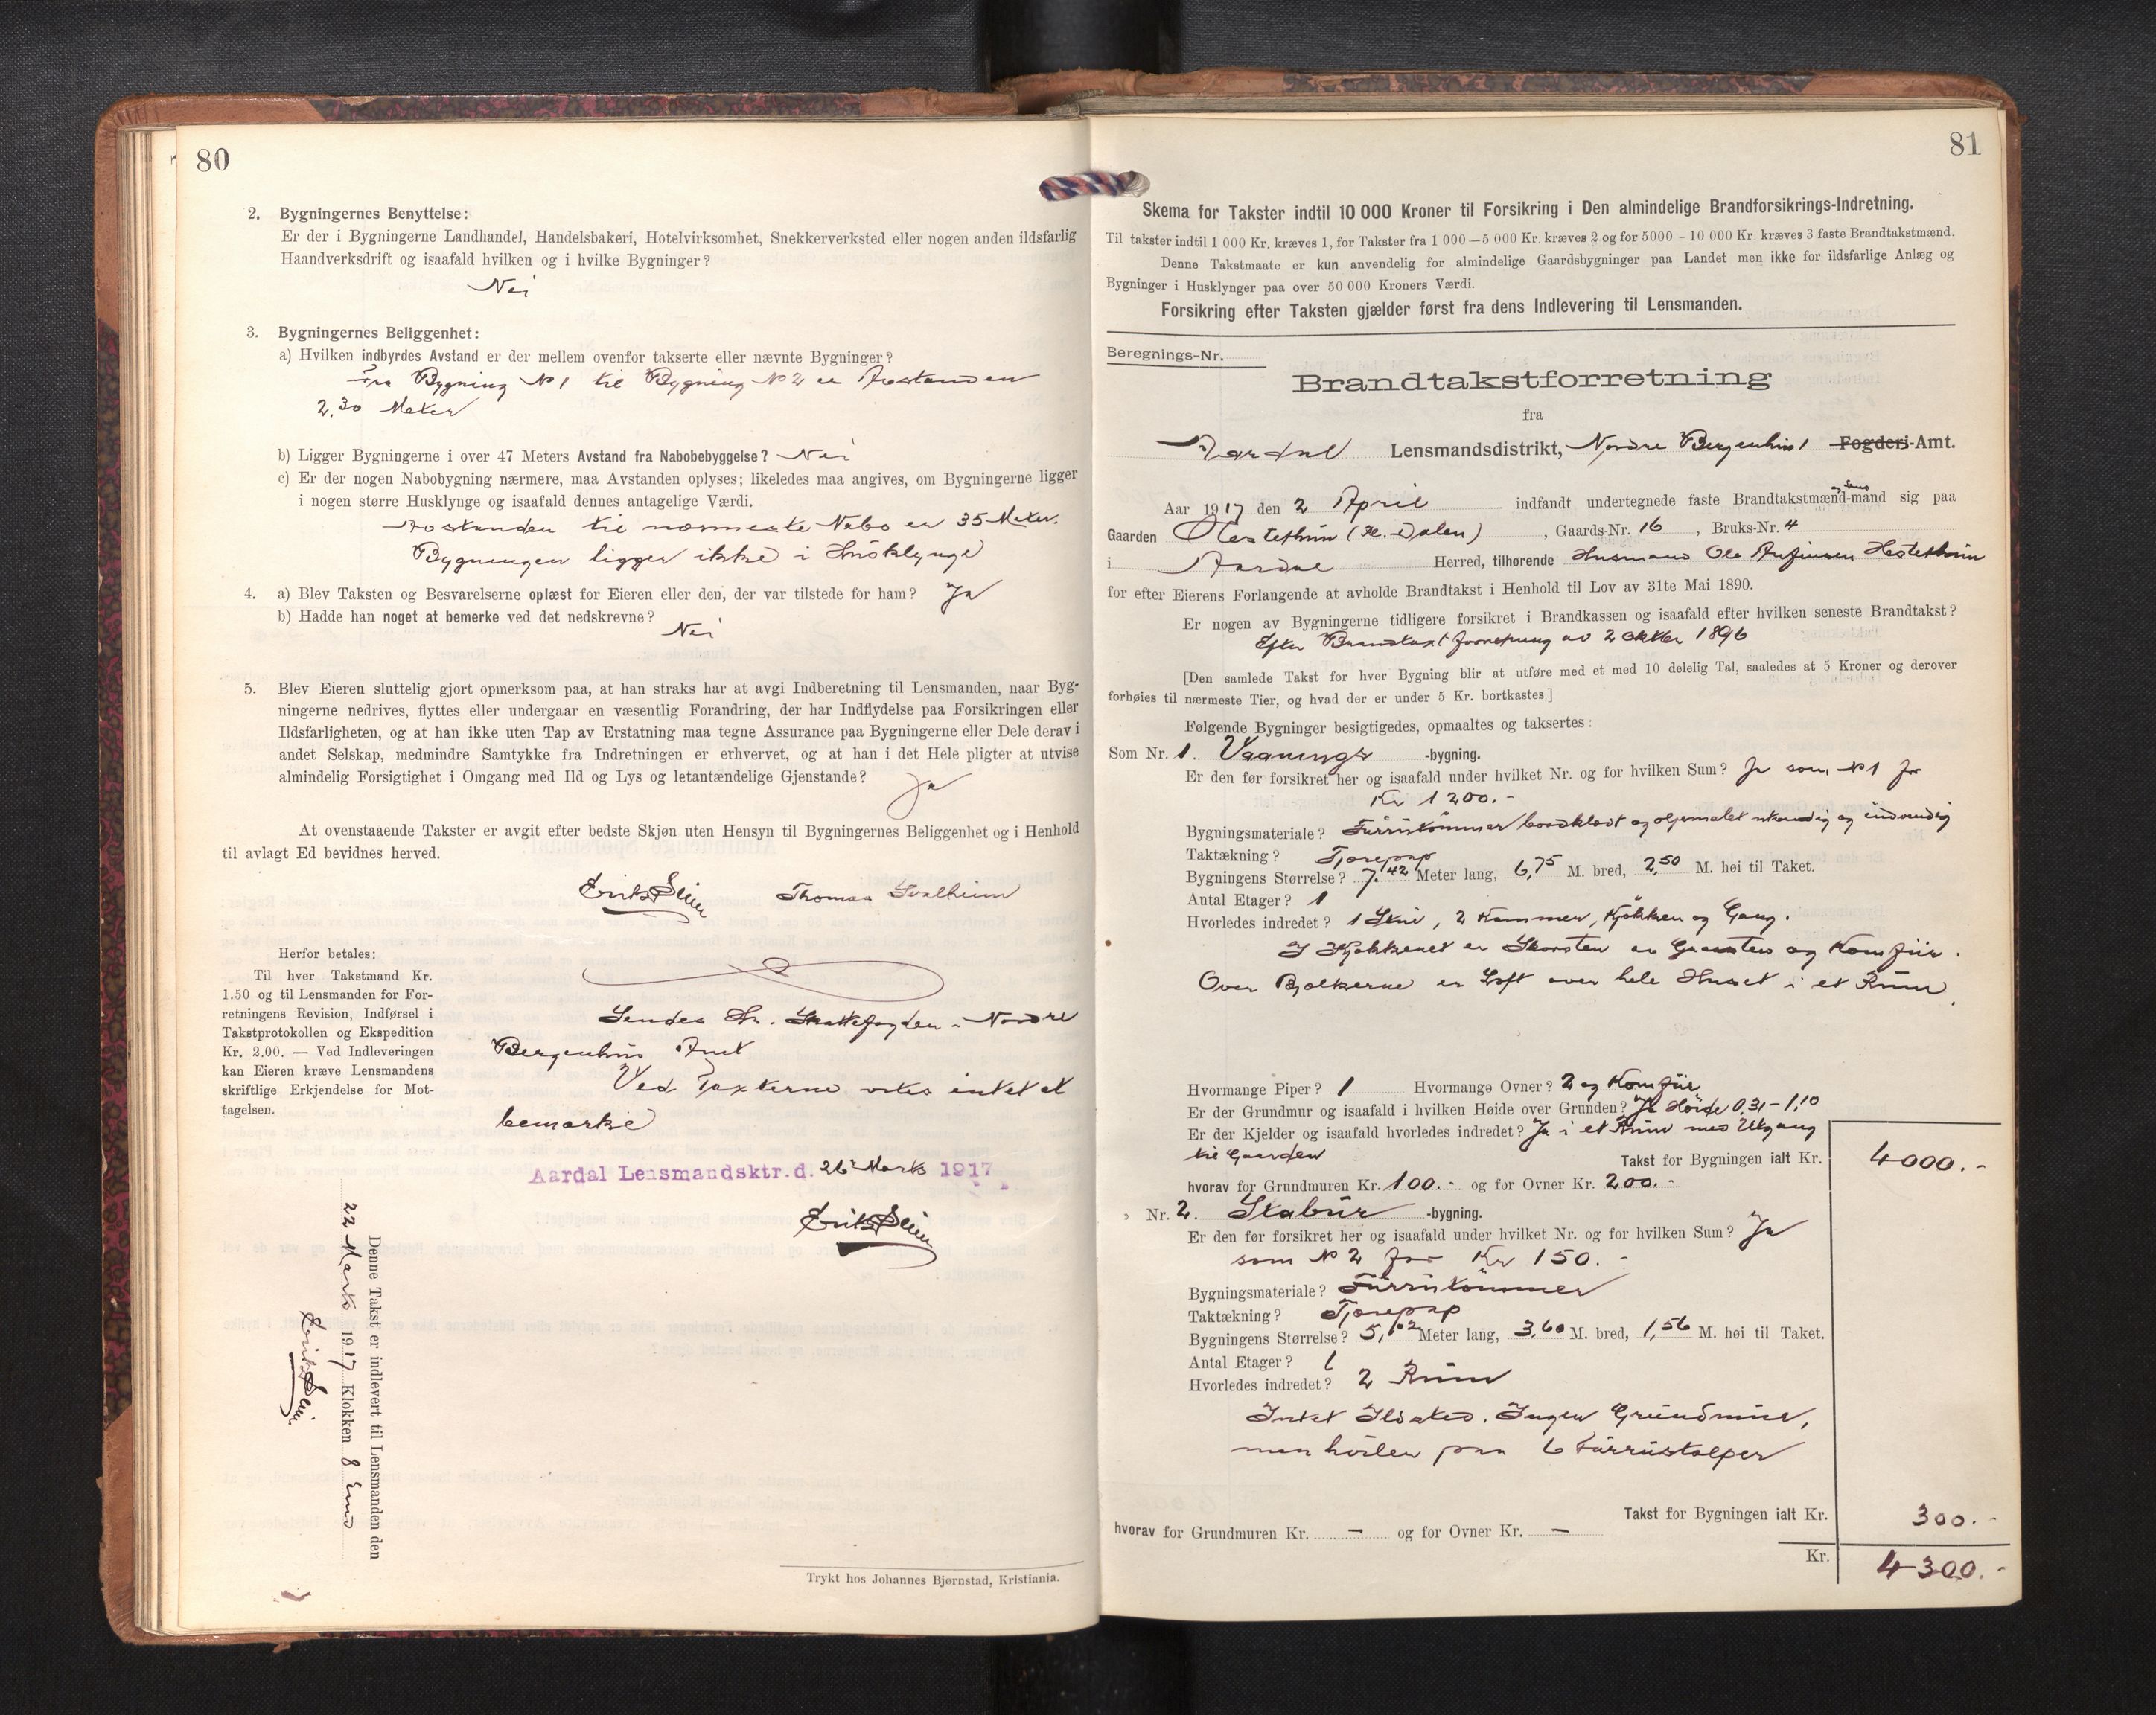 80
2. Bygningernes Benyttelse:
Er der i Bygningerne Landhandel, Handelsbakeri, Hotelvirksomhet, Snekkerverksted eller nogen anden ildsfarlig
Haandverksdrift og isaafald hvilken og i hvilke Bygninger?
Nei
3. Bygningernes Beliggenhet:
a) Hvilken indbyrdes Avstand er der mellem ovenfor takserte eller nævnte Bygninger?
Fra Bygning No 1 til Bygning No 2 er Avstanden
2,30 Meter
b) Ligger Bygningerne i over 47 Meters Avstand fra Nabobebyggelse? Nei
c) Er der nogen Nabobygning nærmere, maa Avstanden oplyses; likeledes maa angives, om Bygningerne ligger
i nogen større Husklynge og isaafald dennes antagelige Værdi.
Avstanden til nærmeste Nabo er 35 Meter.
Bygningen ligger ikke i Husklynge
4. a) Blev Taksten og Besvarelserne oplæst for Eieren eller den, der var tilstede for ham? Ja
b) Hadde han noget at bemerke ved det nedskrevne?
Nei
5. Blev Eieren sluttelig gjort opmerksom paa, at han straks har at avgi Indberetning til Lensmanden, naar Byg-
ningerne nedrives, flyttes eller undergaar en væsentlig Forandring, der har Indflydelse paa Forsikringen eller
Ildsfarligheten, og at han ikke uten Tap av Erstatning maa tegne Assurance paa Bygningerne eller Dele derav i
andet Selskap, medmindre Samtykke fra Indretningen er erhvervet, og at han i det Hele pligter at utvise
almindelig Forsigtighet i Omgang med Ild og Lys og letantændelige Gjenstande?
Ja
At ovenstaaende Takster er avgit efter bedste Skjøn uten Hensyn til Bygningernes Beliggenhet og i Henhold
til avlagt Ed bevidnes herved.
Thomas Svalheim
Herfor betales:
Til hver Takstmand Kr.
1.50 og til Lensmanden for For-
retningens Revision, Indførsel i
Takstprotokollen og Ekspedition
Kr. 2.00. — Ved Indleveringen
kan Eieren kræve Lensmandens
skriftlige Erkjendelse for Mot-
tagelsen.
Sendes Hr. Skattefogden i Nordre
Bergenhus Amt
Ved Taxterne vites intet at
bemærke
Aardal Lensmandsktr. d. 26 Marts 1917
Denne Takst er indlevert til Lensmanden den
22 Marts 1917 Klokken 8 Emd
Trykt hos Johannes Bjørnstad, Kristiania.
81
Skema for Takster indtil 10 000 Kroner til Forsikring i Den almindelige Brandforsikrings-Indretning.
Til takster indtil 1 000 Kr. kræves 1, for Takster fra 1 000—5 000 Kr. kræves 2 og for 5000 - 10 000 Kr. kræves 3 faste Brandtakstmænd.
Denne Takstmaate er kun anvendelig for almindelige Gaardsbygninger paa Landet men ikke for ildsfarlige Anlæg og
Bygninger i Husklynger paa over 50 000 Kroners Værdi.
Forsikring efter Taksten gjælder først fra dens Indlevering til Lensmanden.
Beregnings-Nr.
Brandtakstforretning
fra
Aardal Lensmandsdistrikt, Nordre Bergenhus Fogderi-Amt.
Aar 1917 den 2 April indfandt undertegnede faste Brandtakstmænd-mand sig paa
Gaarden Hestethun , Gaards-Nr. 16 , Bruks-Nr. 4
i Aardal Herred, tilhørende Husmand Ole Anfinsen Hestethun
for efter Eierens Forlangende at avholde Brandtakst i Henhold til Lov av 31te Mai 1890.
Er nogen av Bygningerne tidligere forsikret i Brandkassen og isaafald efter hvilken seneste Brandtakst?
Efter Brandtaxtforretning av 2 Oktbr 1896
[Den samlede Takst for hver Bygning blir at utføre med et med 10 delelig Tal, saaledes at 5 Kroner og derover
forhøies til nærmeste Tier, og hvad der er under 5 Kr. bortkastes.]
Følgende Bygninger besigtigedes, opmaaltes og taksertes:
Som Nr. 1. Vaanings -bygning.
Er den før forsikret her og isaafald under hvilket Nr. og for hvilken Sum? Ja som No 1 for
Kr 1200.-
Bygningsmateriale? Furutømmer bordklædt og oljemalet utvendig og indvendig
Taktækning? Tjærepap
Bygningens Størrelse? 7,42 Meter lang, 6,75 M. bred, 2,50 M. høi til Taket.
Antal Etager? 1
Hvorledes indredet? 1 Stue, 2 Kammer, Kjøkken og Gang.
I Kjøkkenet er Skorsten av Graasten og Komfur.
Over Bjælkerne er Loft over hele Huset i et Rum.
Hvormange Piper? 1 Hvormange Ovner? 2 og Komfur
Er der Grundmur og isaafald i hvilken Høide over Grunden? Ja Høide 0,31 - 1,10
Er der Kjelder og isaafald hvorledes indredet? Ja i et Rum med Utgang
til Gaarden Takst for Bygningen ialt Kr. 4000.-
hvorav for Grundmuren Kr. 100.- og for Ovner Kr. 200.-
Nr. 2. Stabur -bygning.
Er den før forsikret her og isaafald under hvilket Nr. og for hvilken Sum? Ja
som No 2 for Kr 150.-
Bygningsmateriale? Furutømmer
Taktækning? Tjærepap
Bygningens Størrelse? 5,02 Meter lang, 3,60 M. bred, 1,56 M. høi til Taket.
Antal Etager? 1
Hvorledes indredet? 2 Rum
Intet Ildsted. Ingen Grundmur,
men hviler paa 6 Furustolper
Takst for Bygningen ialt Kr. 300.-
hvorav for Grundmuren Kr. — og for Ovner Kr. —
Kr. 4300.-